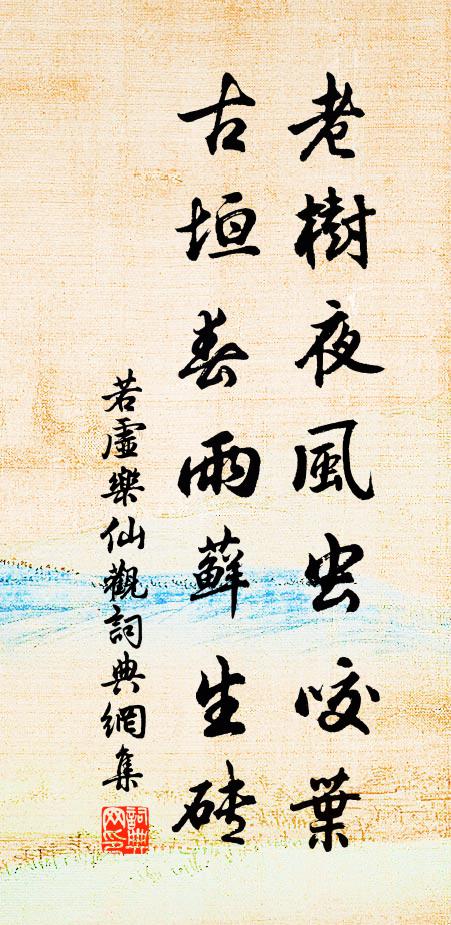 老樹夜風虫咬葉
古垣春雨蘚生磚
若虛樂仙觀詞典網集
詞典網印